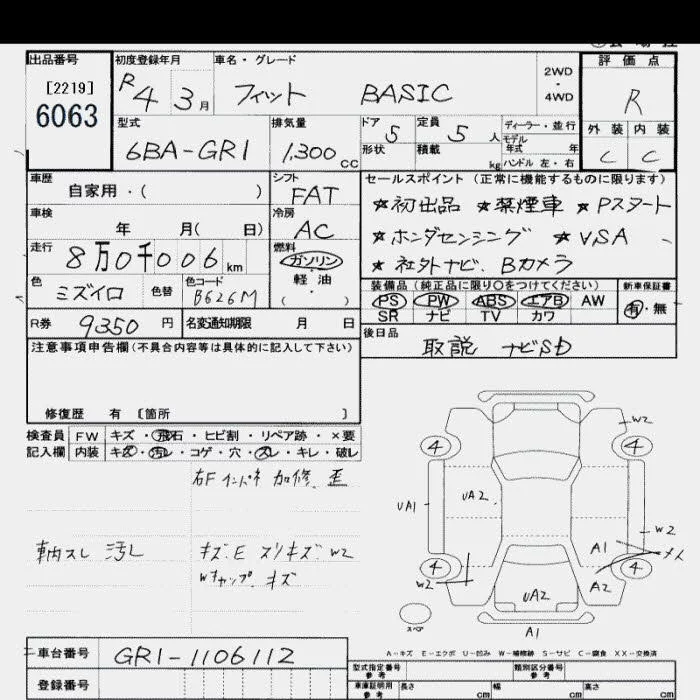 出品番号 初度登録年月 車名・グレード 2WD ・ 4WD 評価点
[2219] R4 3月 フィット BASIC R
6063
型式 排気量 ドア 5 定員 5人 ディーラー・並行 外装 内装
6BA-GR1 1,300cc 形状 積載 kg モデル年式 年 C C
ハンドル 左・右
車歴 シフト セールスポイント(正常に機能するものに限ります)
自家用・( ) FAT ★初出品 ★禁煙車 ★Pスタート
車検 冷房
年 月( 日) AC ★ホンダセンシング ★VSA
走行 燃料
8万0千006km ガソリン ★社外ナビ.Bカメラ
色 色替 色コード 軽油 装備品(純正品に限り○をつけてください) 新車保証書
ミズイロ B626M ( ・ ) PS PW ABS エアB AW 有・無
SR ナビ TV カワ
R券 9350円 名変通知期限 月 日 後日品
注意事項申告欄(不具合内容等は具体的に記入して下さい) 取説 ナビSD
修復歴 有 [箇所 ]
検査員 FW キズ・飛石・ヒビ割・リペア跡・×要
記入欄 内装 キズ・汚レ・コゲ・穴・スレ・キレ・破レ
右F インパネ 加修、歪
W2
4 4
UA1 UA2
車内スレ 汚レ キズ.E スリキズ W2
Wキャップ.キズ
W2 A1 メイ
4 4
W2 UA2 A2
スペア
A1
A-キズ E-エクボ U-凹み W-補修跡 S-サビ C-腐食 XX-交換済
車台番号 GR1-1106112
型式指定番号 参考 類別区分番号 参考
登録番号 車庫証明用 参考 長さ cm 幅 cm 高さ cm